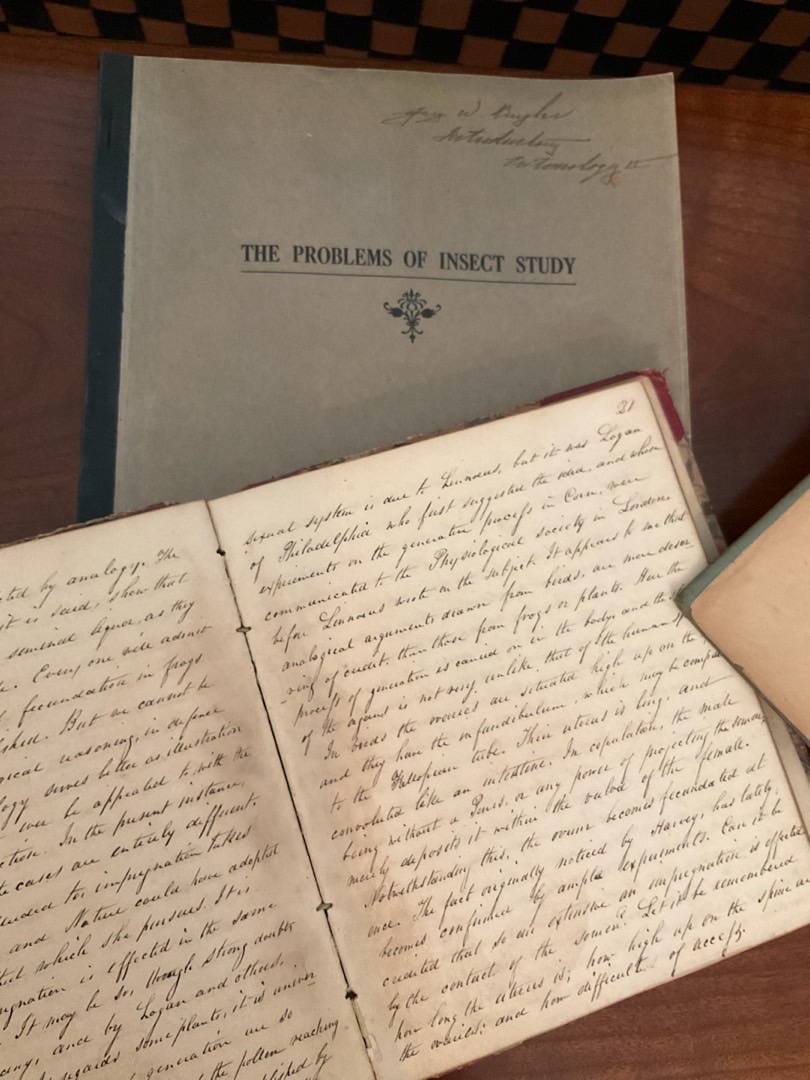 W
Introductory
Entomology II
THE PROBLEMS OF INSECT STUDY
ted by analogy. The
it is said, show that
seminal liquor, as they
Every one will admit
fecundation in frogs
But we cannot be
reasoning, in defence
serves better as illustration
ever be appealed to, with the
In the present instance,
cases are entirely different.
for impregnation takes
and Nature could have adopted
which she pursues. It is
is effected in the same
It may be so, though strong doubts
and by Logan and others.
regards some plants, it is
generation are so
the pollen reaching
by
21
sexual system is due to Linnæus, but it was Logan
of Philadelphia who first suggested the idea, and whose
experiments on the generative process in Corn, were
communicated to the Physiological society in London,
before Linnæus wrote on the subject. It appears to me that
analogical arguments drawn from birds, are more deser-
-ving of credit, than those from frogs or plants. Here the
process of generation is carried on in the body, and the
of the organs is not very unlike that of the human
In birds the ovaries are situated high up on the
and they have the infundibulum, which may be compared
to the Fallopian tube. Their uterus is long, and
convoluted like an intestine. In copulation, the male
being without a Penis, or any power of projecting the semen,
merely deposits it within the vulva of the female.
Notwithstanding this, the ovum becomes fecundated at
once. The fact originally noticed by Harvey, has lately,
becomes confirmed by ample experiments. Can it be
credited that so an extensive an impregnation is effected
by the contact of the semen? Let it be remembered
how long the uterus is; how high up on the spine are
the ovaries; and how difficult of access.